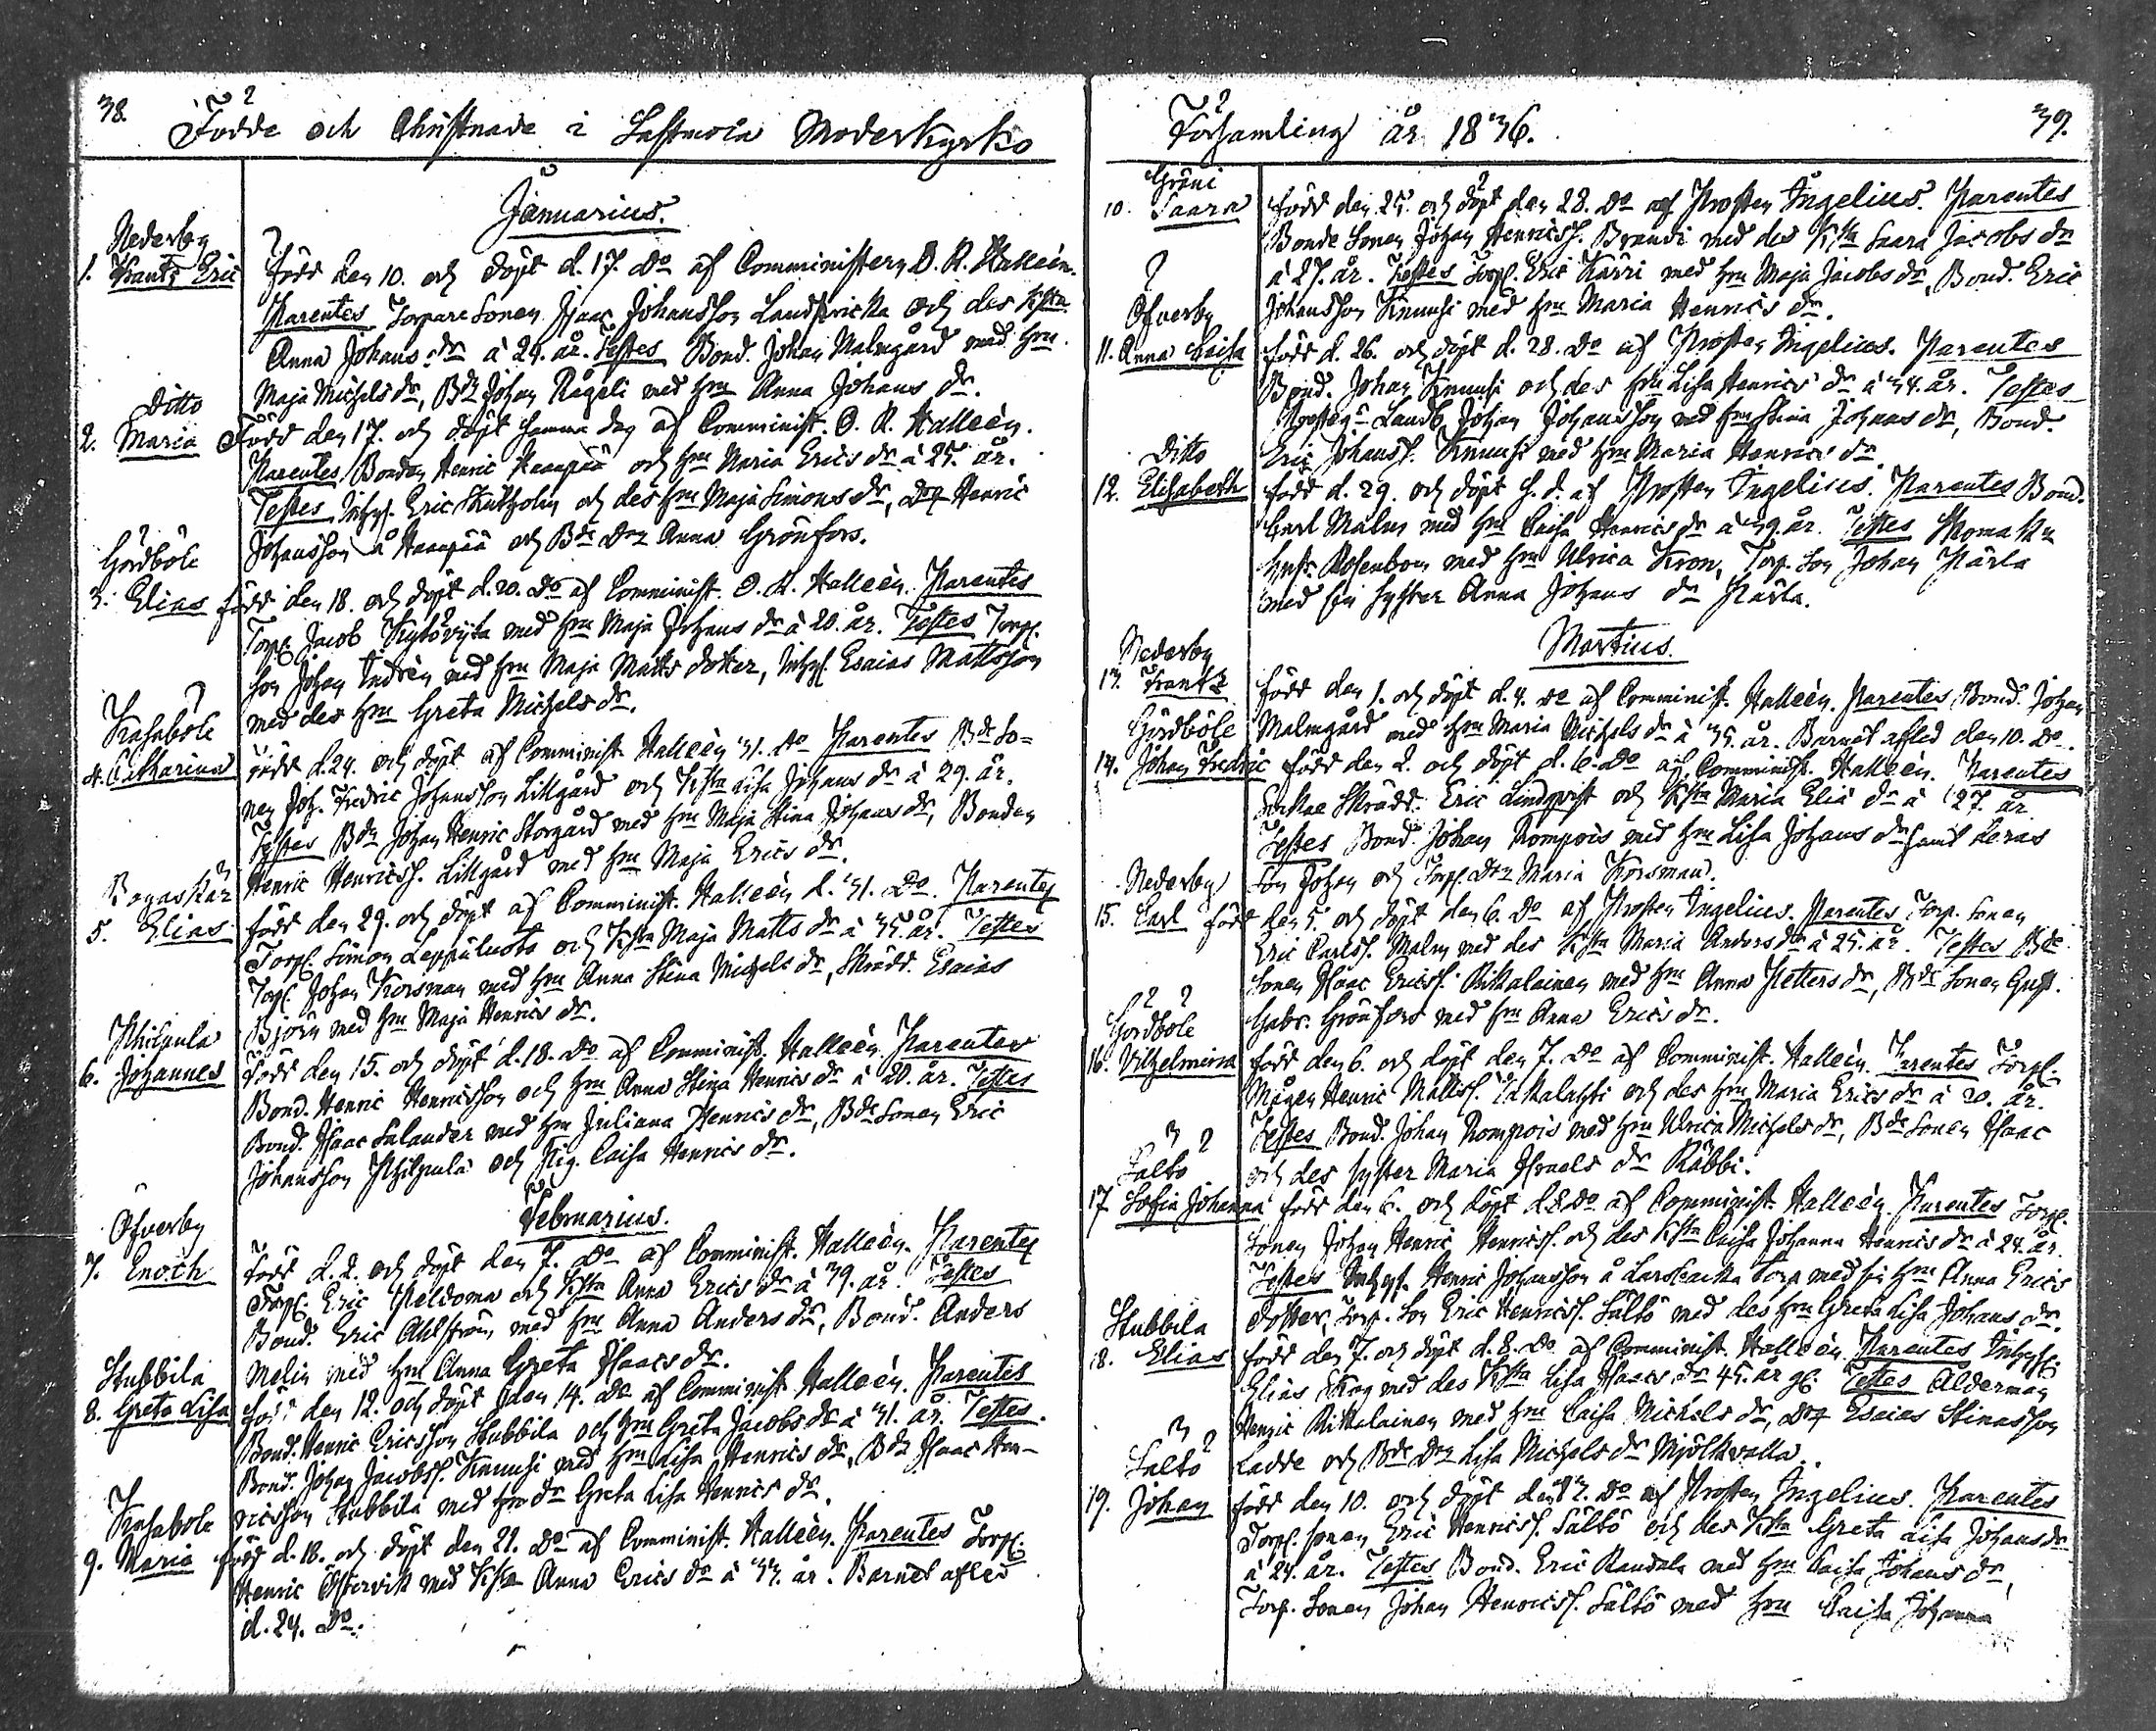 38.
Födde och Christnade i Lastmola Moderkyrko
Januarius.
Nederby
1. Frants Eric född den 10. och döpt d. 17. do af Comministern O. R. Halleèn.
Parentes Torpare Sonen Isaac Johansson Landstricka och des Hstr
Anna Johans dr à 29. år. Testes Bond. Johan Malmgård med Hru
Maja Michels dr, Bdn Johan Rågeli med Hru Anna Johans dr.
Ditto
2. Maria Född den 17. och döpt samma dag af Comminist. O. R. Halleèn.
Parentes Bonden Henric Haapää och Hru Maria Erics dr à 25. år.
Testes Inhys. Eric Skutholm och des Hru Maja Simons dr, Drg Henric
Johansson å Haapää och Bde Dr Anna Grönfors.
Gördböle
3. Elias född den 18. och döpt d. 20. do af Comminist. O. R. Halleèn. Parentes
Torp. Jacob Kylövijta med Hru Maja Johans dr à 20. år. Testes Torp.
Son Johan Andrèn med Hru Maja Matts dotter, Inhys. Esaias Mattsson
med des Hru Greta Michels dr.
Kasaböle
4. Catharina född d. 24. och döpt af Comminist. Halleèn 31. do Parentes Bde So-
nen Joh. Fredric Johansson Lillgård och Hstr Lisa Johans dr à 29. år.
Testes Bdn Johan Henric Storgård med Hru Maja Stina Johans dr, Bonden
Henric Henricss. Lillgård med Hru Maja Erics dr.
Bogaskär
5. Elias född den 29. och döpt af Comminist. Halleèn d. 31. do. Parentes
Torp. Simon Leppäluoto och Hstr Maja Matts dr à 35. år. Testes
Torp. Johan Korsman med Hru Anna Stina Michels dr, Skrädd. Esaias
Björn med Hru Maja Henrics dr.
Philpula
6. Johannes född den 15. och döpt d. 18. do af Comminist. Halleèn. Parentes
Bond. Henric Henricsson och Hru Anna Stina Henrics dr à 20. år. Testes
Bond. Isaac Salander med Hru Juliana Henrics dr, Bde Sonen Eric
Johansson Philpula och Pig. Caisa Henrics dr.
Februarius.
Öfverby
7. Enoch född d. 2. och döpt den 7. do af Comminist. Halleèn. Parentes
Torp. Eric Peldoma och Hstr Anna Erics dr à 39. år. Testes
Bond. Eric Ahlström med Hru Anna Anders dr, Bond. Anders
Melin med Hru Anna Greta Isaacs dr.
Stubbila
8. Greta Lisa född den 12. och döpt den 14. do af Comminist. Halleèn. Parentes
Bond. Henric Ericsson Stubbila och Hru Greta Jacobs dr à 31. år. Testes.
Bond. Johan Jacobss. Knuusi med Hru Lisa Henrics dr, Bdn Isaac Hen-
ricsson Stubbila med Hru Greta Lisa Henrics dr.
Kasaböle
9. Maria född d. 18. och döpt den 21. do af Comminist. Halleèn. Parentes Torp.
Henric Östervik med Hstr Anna Erics dr à 33. år. Barnet afled
d. 24. do.
Församling år 1836.
39.
Gröni
10. Saara född den 25. och döpt den 28. do af Prosten Ingelius. Parentes
Bonde Sonen Johan Henricss. Brandi med des Hstr Saara Jacobs dr
à 27. år. Testes Torp. Eric Kärri med Hru Maja Jacobs dr, Bond. Eric
Johansson Knuusi med Hru Maria Henrics dr.
Öfverby
11. Anna Caisa född d. 26. och döpt d. 28. do af Prosten Ingelius. Parentes
Bond. Johan Knuusi och des Hru Lisa Henrics dr à 34. år. Testes
Prosteg. Landb. Johan Johansson med Hru Stina Johans dr, Bond.
Eric Johanss. Knuusi med Hru Maria Henrics dr.
Ditto
12. Elisabeth född d. 29. och döpt s. d. af Prosten Ingelius. Parentes Bond.
Carl Malm med Hru Caisa Henrics dr à 39. år. Testes
Gust. Rosenbom med Hru Ulrica Kron, Torp. Son Johan Pärla
med sin syster Anna Johans dr Pärla.
Martius.
Nederby
13. Frants född den 1. och döpt d. 4. do af Comminist. Halleèn. Parentes Bond. Johan
Malmgård med Hru Maria Michels dr à 35. år. Barnet afled den 10. do.
Gördböle
14. Johan Fredric född den 2. och döpt d. 6. do af Comminist. Halleèn. Parentes
Skrädd. Eric Lindqvist och Hstr Maria Eliä dr à 27. år.
Testes Bond. Johan Rompois med Hru Lisa Johans dr samt deras
Son Johan och Torp. Dr Maria Korsman.
Nederby
15. Carl född den 5. och döpt den 6. do af Prosten Ingelius. Parentes Torp. Sonen
Eric Carlss. Malm med des Hstr Maria Anders dr à 25. år. Testes Bde
Sonen Isaac Ericss. Rikkalainen med Hru Anna Petters dr, Bde Sonen Gust.
Gabr. Grönfors med Hru Anna Erics dr.
Gördböle
16. Vilhelmina född den 6. och döpt den 7. do af Comminist. Halleèn. Parentes Torp.
Mågen Henric Mattss. och des Hru Maria Erics dr à 20. år.
Testes Bond. Johan Rompois med Hru Ulrica Michels dr, Bde Sonen Isaac
och des syster Maria Israels dr Räbbi.
Saltö
17. Sofia Johanna född den 6. och döpt d. 8. do af Comminist. Halleèn. Parentes Torp.
Sonen Johan Henric Henricss. och des Hstr Caisa Johanna Henrics dr à 24. år.
Testes Inhys. Henric Johansson å Torp med sin Hru Anna Erics
dotter, Torp. Son Eric Henricss. Saltö med des Hru Greta Lisa Johans dr.
Stubbila
18. Elias född den 7. och döpt d. 8. do af Comminist. Halleèn. Parentes Inhyss.
Elias Skog med des Hstr Lisa Isaacs dr 45. år gl. Testes Ålderman
Henric Rikkalainen med Hru Caisa Michels dr, Drg Esaias Stinasson
Ladde och Bde Dr Lisa Michels dr Mjölkvalla.
Saltö
19. Johan född den 10. och döpt den 13. do af Prosten Ingelius. Parentes
Torp. sonen Eric Henricss. Saltö och des Hstr Greta Lisa Johans dr
à 24. år. Testes Bond. Eric Randala med Hru Caisa Johans dr,
Torp. Sonen Johan Henricss. Saltö med Hru Caisa Johanna